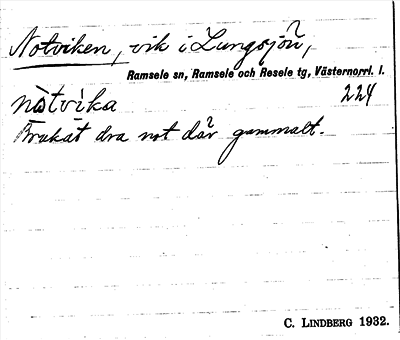 Notviken, vik i Lungsjön,
Ramsele sn, Ramsele och Resele tg, Västernorrl. l.
nòtvìka 224
Brukat dra not där gammalt.
C. LINDBERG 1932.